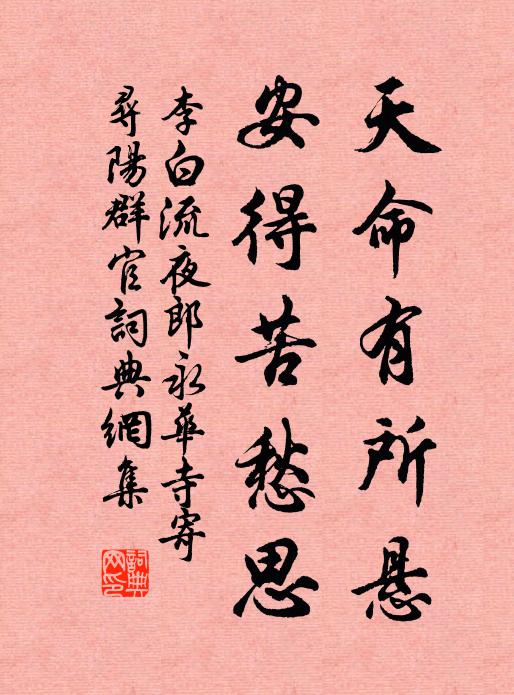 天命有所悬
安得苦愁思
李白流夜郎永華寺寄
尋陽群官詞典網集
詞典网印